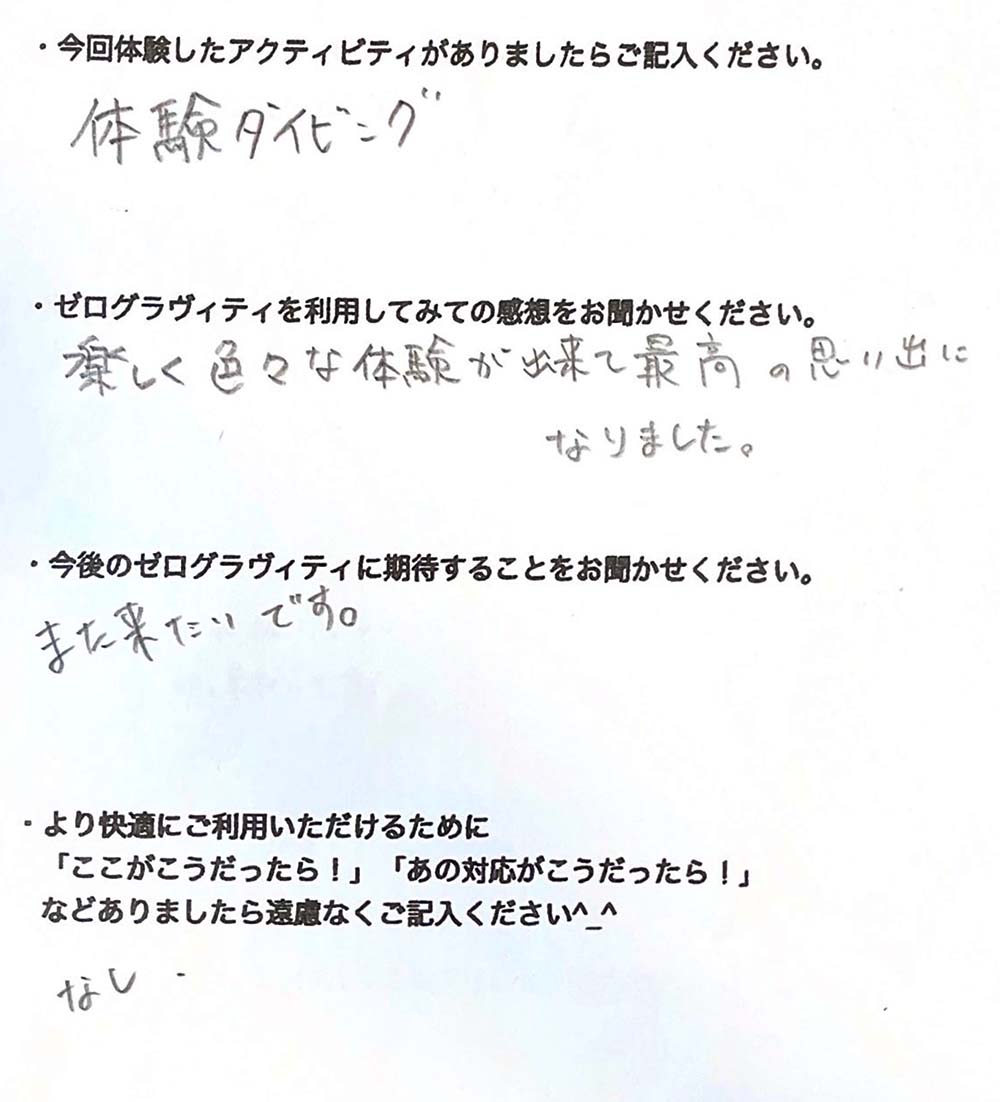 ・今回体験したアクティビティがありましたらご記入ください。
体験ダイビング
・ゼログラヴィティを利用してみての感想をお聞かせください。
楽しく色々な体験が出来て最高の思い出に
なりました。
・今後のゼログラヴィティに期待することをお聞かせください。
また来たいです。
・より快適にご利用いただけるために
「ここがこうだったら！」「あの対応がこうだったら！」
などありましたら遠慮なくご記入ください^_^
なし